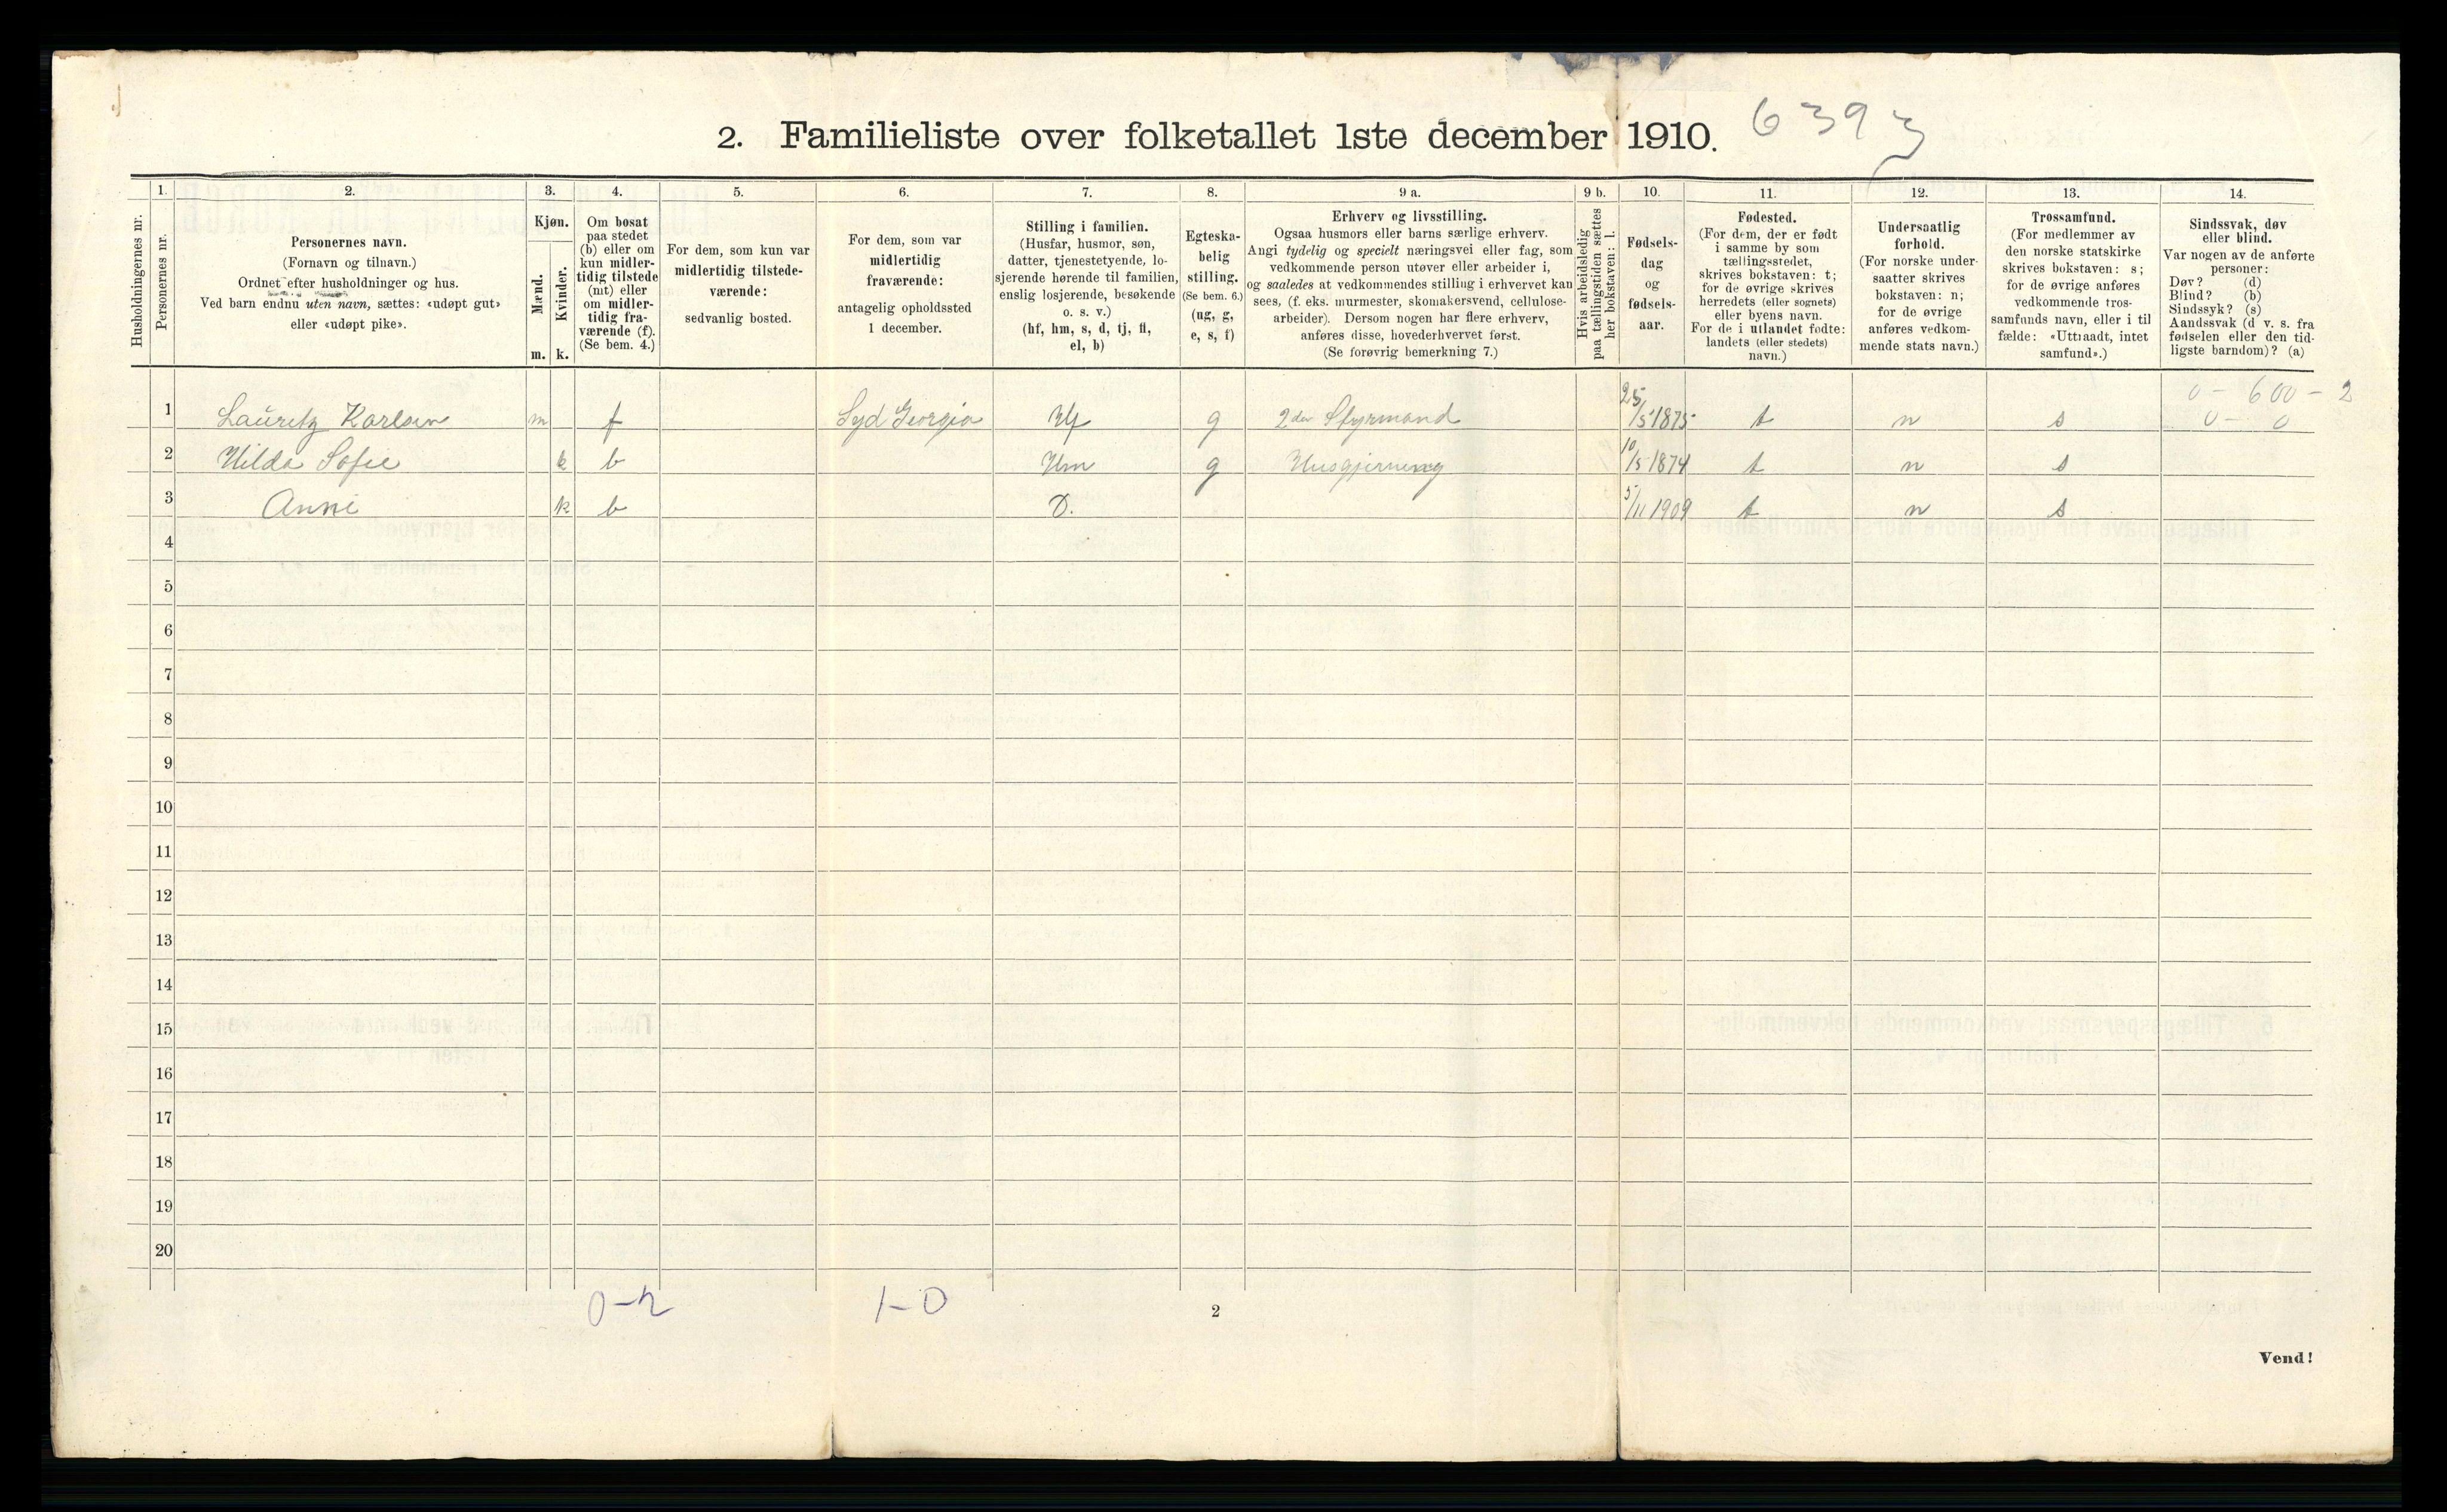 2. Familieliste over folketallet 1ste december 1910. 6393
Husholdningernes nr.
1.
Personernes nr.
2.
Personernes navn.
(Fornavn og tilnavn.)
Ordnet efter husholdninger og hus.
Ved barn endnu uten navn, sættes: «udøpt gut»
eller «udøpt pike».
3.
Kjøn.
Mænd.
Kvinder.
m. k.
4.
Om bosat
paa stedet
(b) eller om
kun midler-
tidig tilstede
(mt) eller
om midler-
tidig fra-
værende (f).
(Se bem. 4.)
5.
For dem, som kun var
midlertidig tilstede-
værende:
sedvanlig bosted.
6.
For dem, som var
midlertidig
fraværende:
antagelig opholdssted
1 december.
7.
Stilling i familien.
(Husfar, husmor, søn,
datter, tjenestetyende, lo-
sjerende hørende til familien,
enslig losjerende, besøkende
o. s. v.)
(hf, hm, s, d, tj, fl,
el, b)
8.
Egteska-
belig
stilling.
(Se bem. 6.)
(ug, g,
e, s, f)
9 a.
Erhverv og livsstilling.
Ogsaa husmors eller barns særlige erhverv.
Angi tydelig og specielt næringsvei eller fag, som
vedkommende person utøver eller arbeider i,
og saaledes at vedkommendes stilling i erhvervet kan
sees, (f. eks. murmester, skomakersvend, cellulose-
arbeider). Dersom nogen har flere erhverv,
anføres disse, hovederhvervet først.
(Se forøvrig bemerkning 7.)
9 b.
Hvis arbeidsledig
paa tællingstiden sættes
her bokstaven: l.
10.
Fødsels-
dag
og
fødsels-
aar.
11.
Fødested.
(For dem, der er født
i samme by som
tællingsstedet,
skrives bokstaven: t;
for de øvrige skrives
herredets (eller sognets)
eller byens navn.
For de i utlandet fødte:
landets (eller stedets)
navn.)
12.
Undersaatlig
forhold.
(For norske under-
saatter skrives
bokstaven: n;
for de øvrige
anføres vedkom-
mende stats navn.)
13.
Trossamfund.
(For medlemmer av
den norske statskirke
skrives bokstaven: s;
for de øvrige anføres
vedkommende tros-
samfunds navn, eller i til-
fælde: «Uttraadt, intet
samfund».)
14.
Sindssvak, døv
eller blind.
Var nogen av de anførte
personer:
Døv? (d)
Blind? (b)
Sindssyk? (s)
Aandssvak (d v. s. fra
fødselen eller den tid-
ligste barndom)? (a)
0 - 600 - 2
1 Lauritz Karlsen m f Syd Georgia Hf g 2den Styrmand 25/5 1875 t n s 0 - 0
2 Hilda Sofie k b Hm g Husgjerning 10/5 1874 t n s
3 Anni k b D. 5/11 1909 t n s
4
5
6
7
8
9
10
11
12
13
14
15
16
17
18
19
20
0-2 1-0
2
Vend!